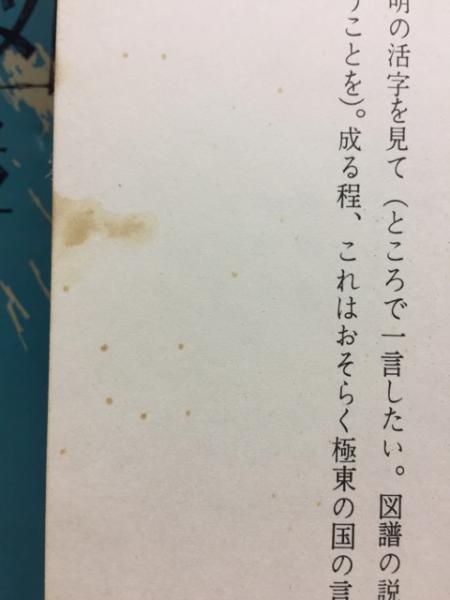 明の活字を見て（ところで一言したい。図譜の説
うことを）。成る程、これはおそらく極東の国の言